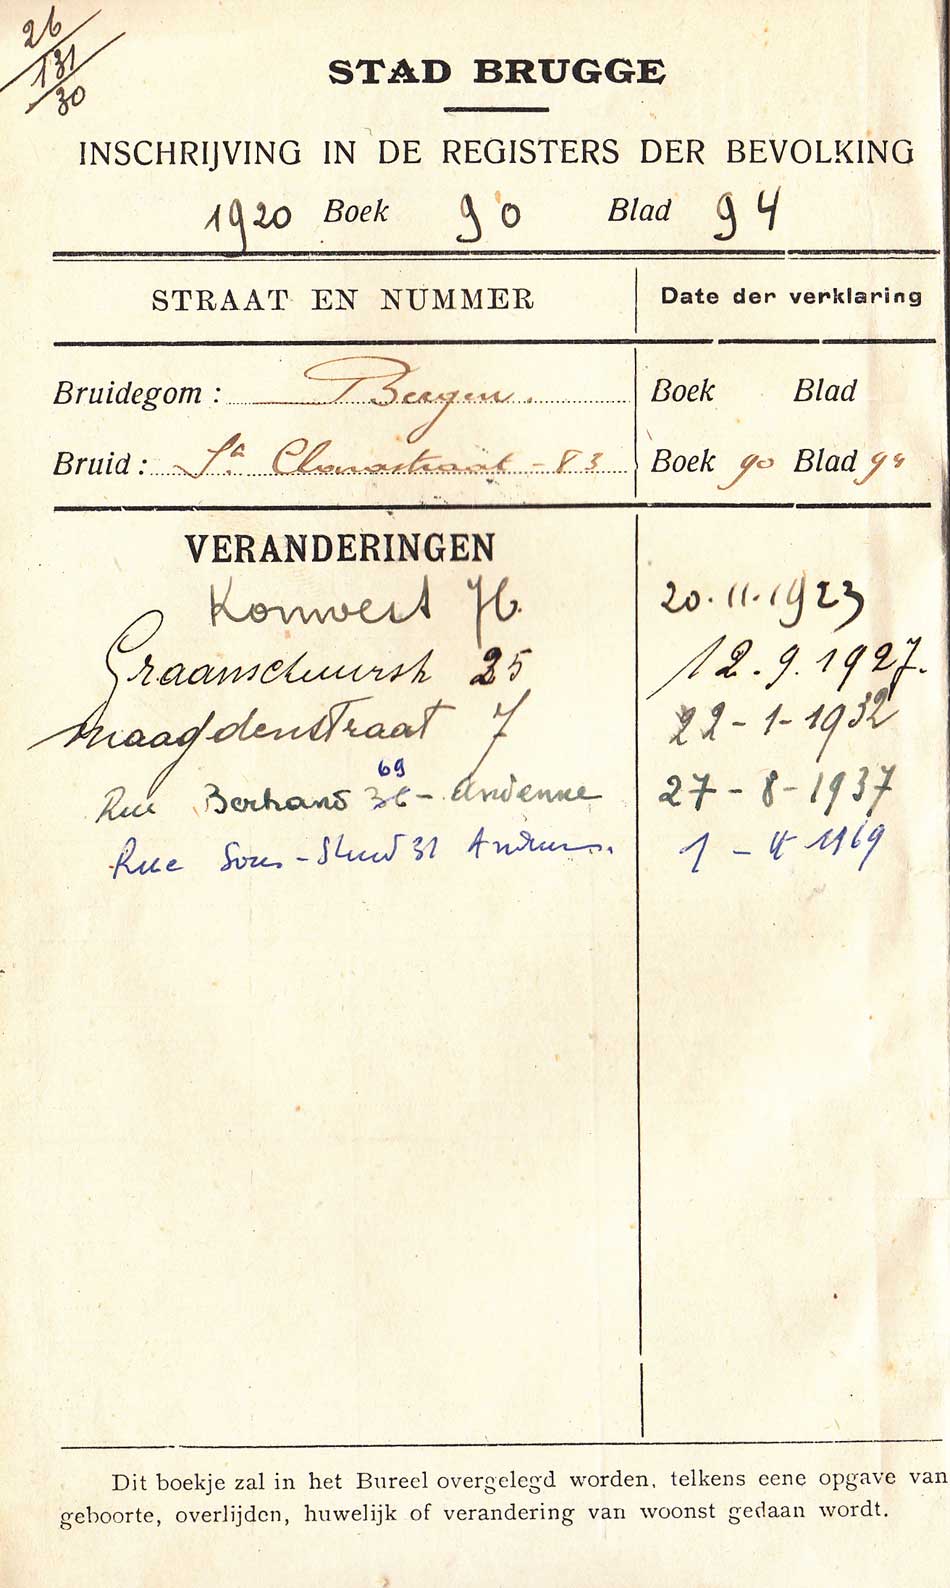 26
131
30
STAD BRUGGE
INSCHRIJVING IN DE REGISTERS DER BEVOLKING
1920 Boek 90 Blad 94
STRAAT EN NUMMER Date der verklaring
Bruidegom : Bergen. Boek Blad
Bruid : Sa Clarastraat - 83 Boek 90 Blad 94
VERANDERINGEN
Komvest 20.11.1923
Graanschuurst 25 12.9.1927.
maagdenstraat 7 22-1-1932
69
Rue Bertrand 36 - Andenne 27-8-1937
Rue Sous-Stud 31 1-4 1969
Dit boekje zal in het Bureel overgelegd worden, telkens eene opgave van
geboorte, overlijden, huwelijk of verandering van woonst gedaan wordt.